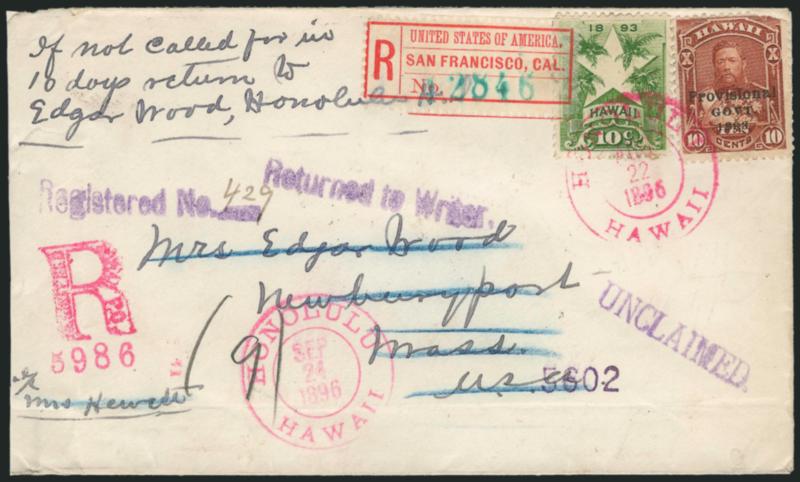 If not called for in
10 days return to
Edgar Wood, Honolulu H.
R
UNITED STATES OF AMERICA,
SAN FRANCISCO, CAL.
No. 12846
18 93
HAWAII
10 C
HAWAII
Provisional
GOVT.
1893
10 CENTS 10
22
1896
HAWAII
Registered No. 429
Returned to Writer.
Mrs Edgar Wood
Newburyport
Mass.
U.S.A.
R
5986
(9)
HONOLULU
SEP
24
1896
HAWAII
UNCLAIMED.
5602
Mrs Hewett